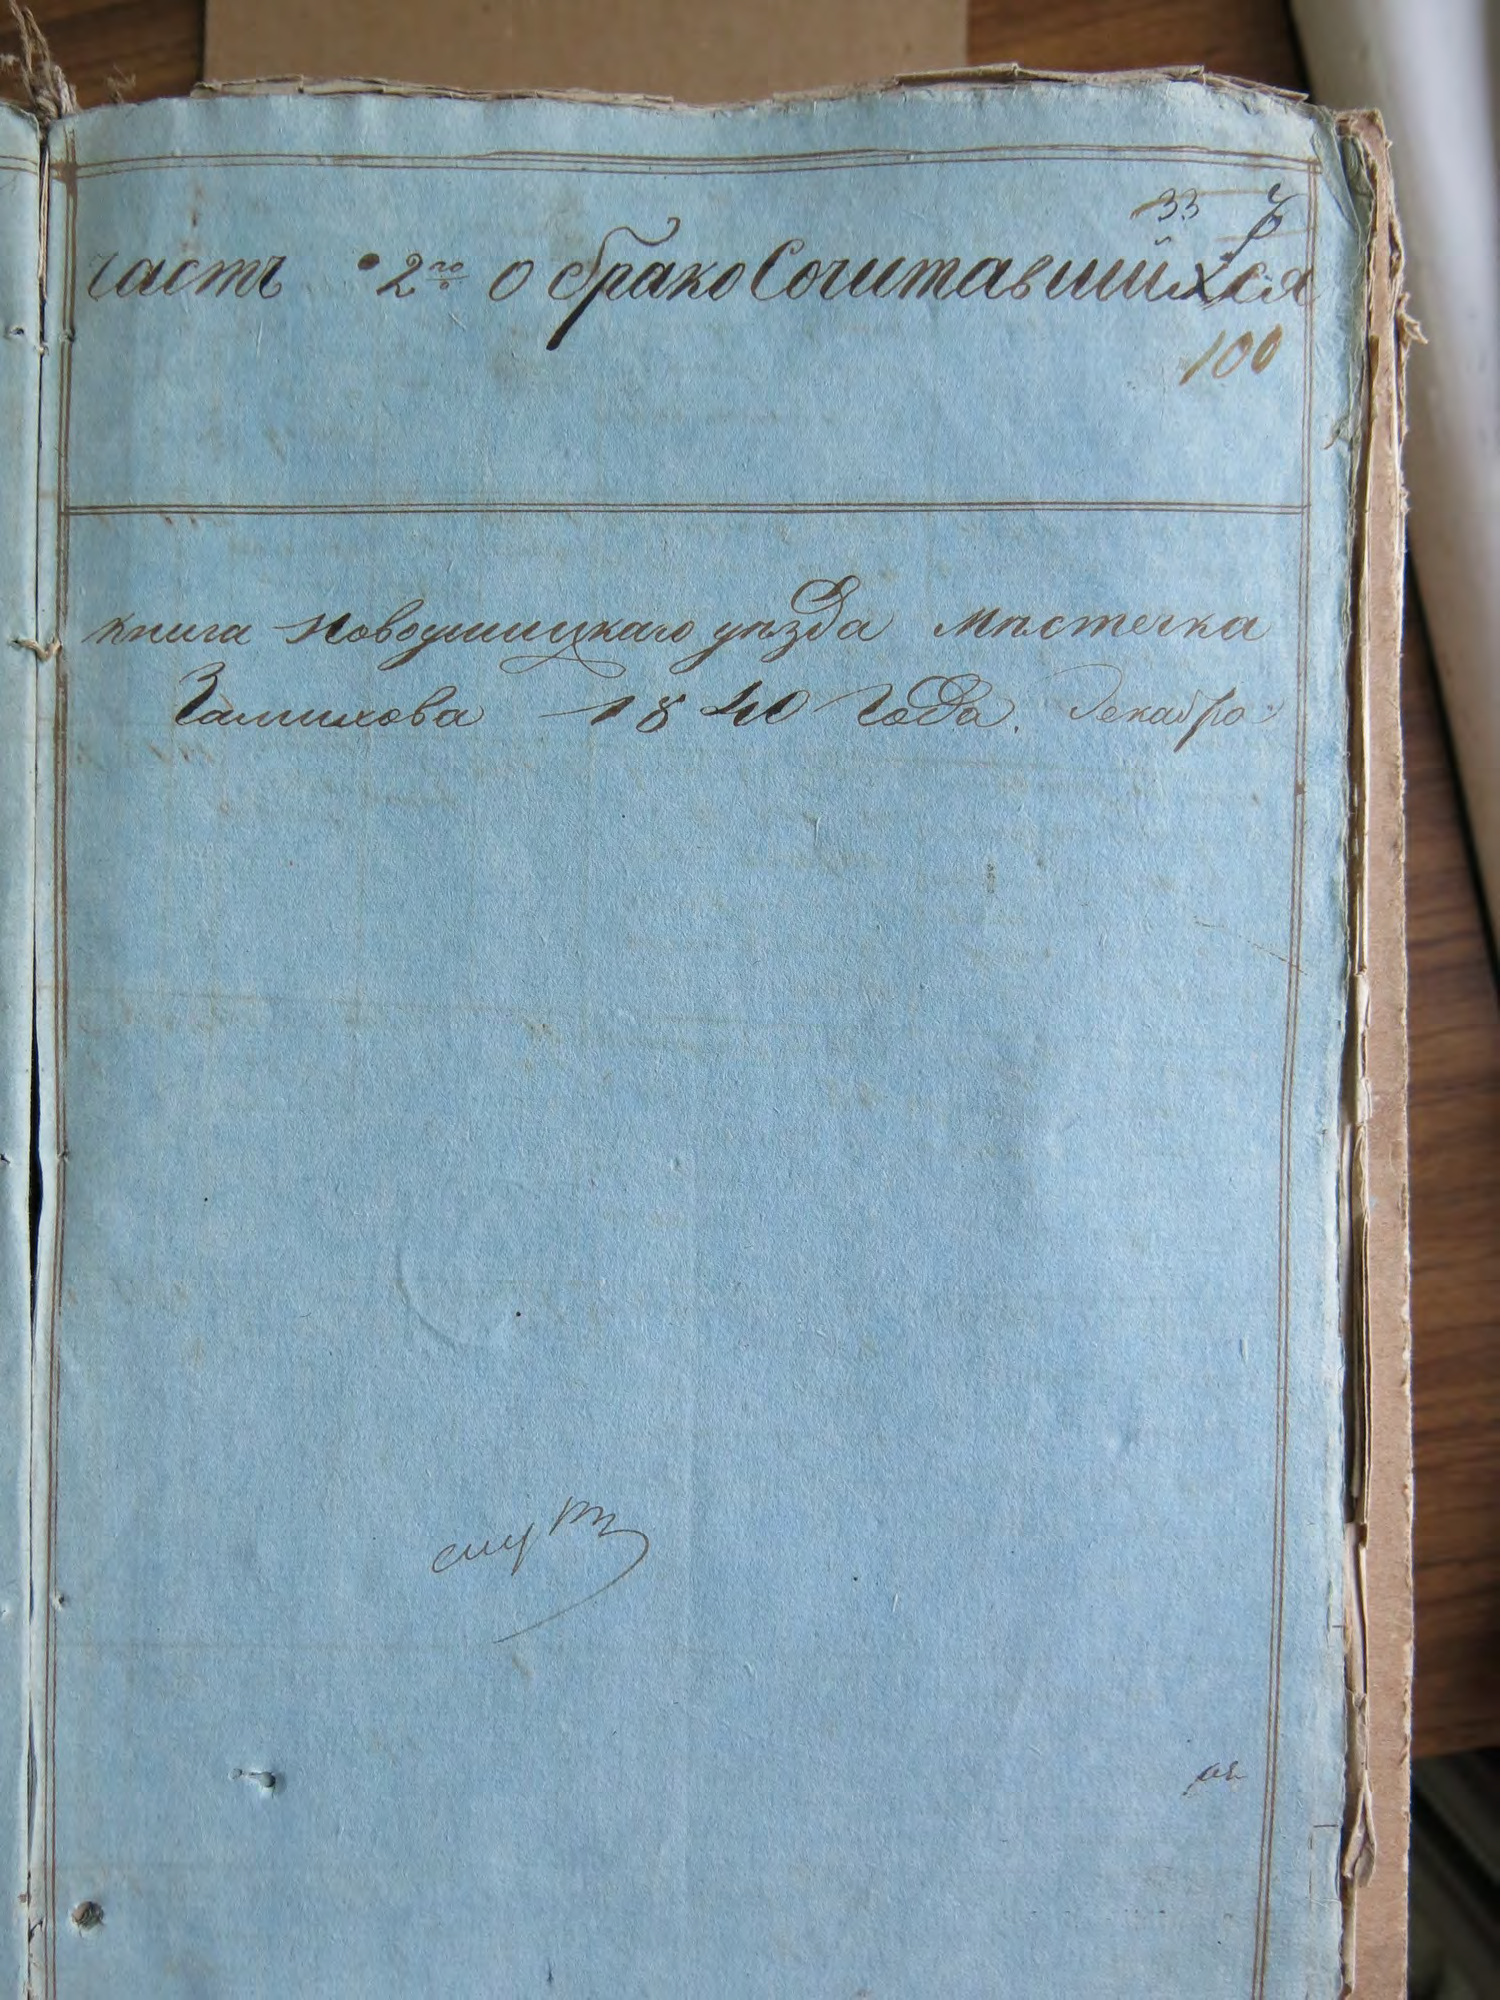 33
Часть 2го о бракоСочитавшийхся
100
книга Новоушицкаго уѣзда мѣстечка
Замихова 1840 Года. Декабра